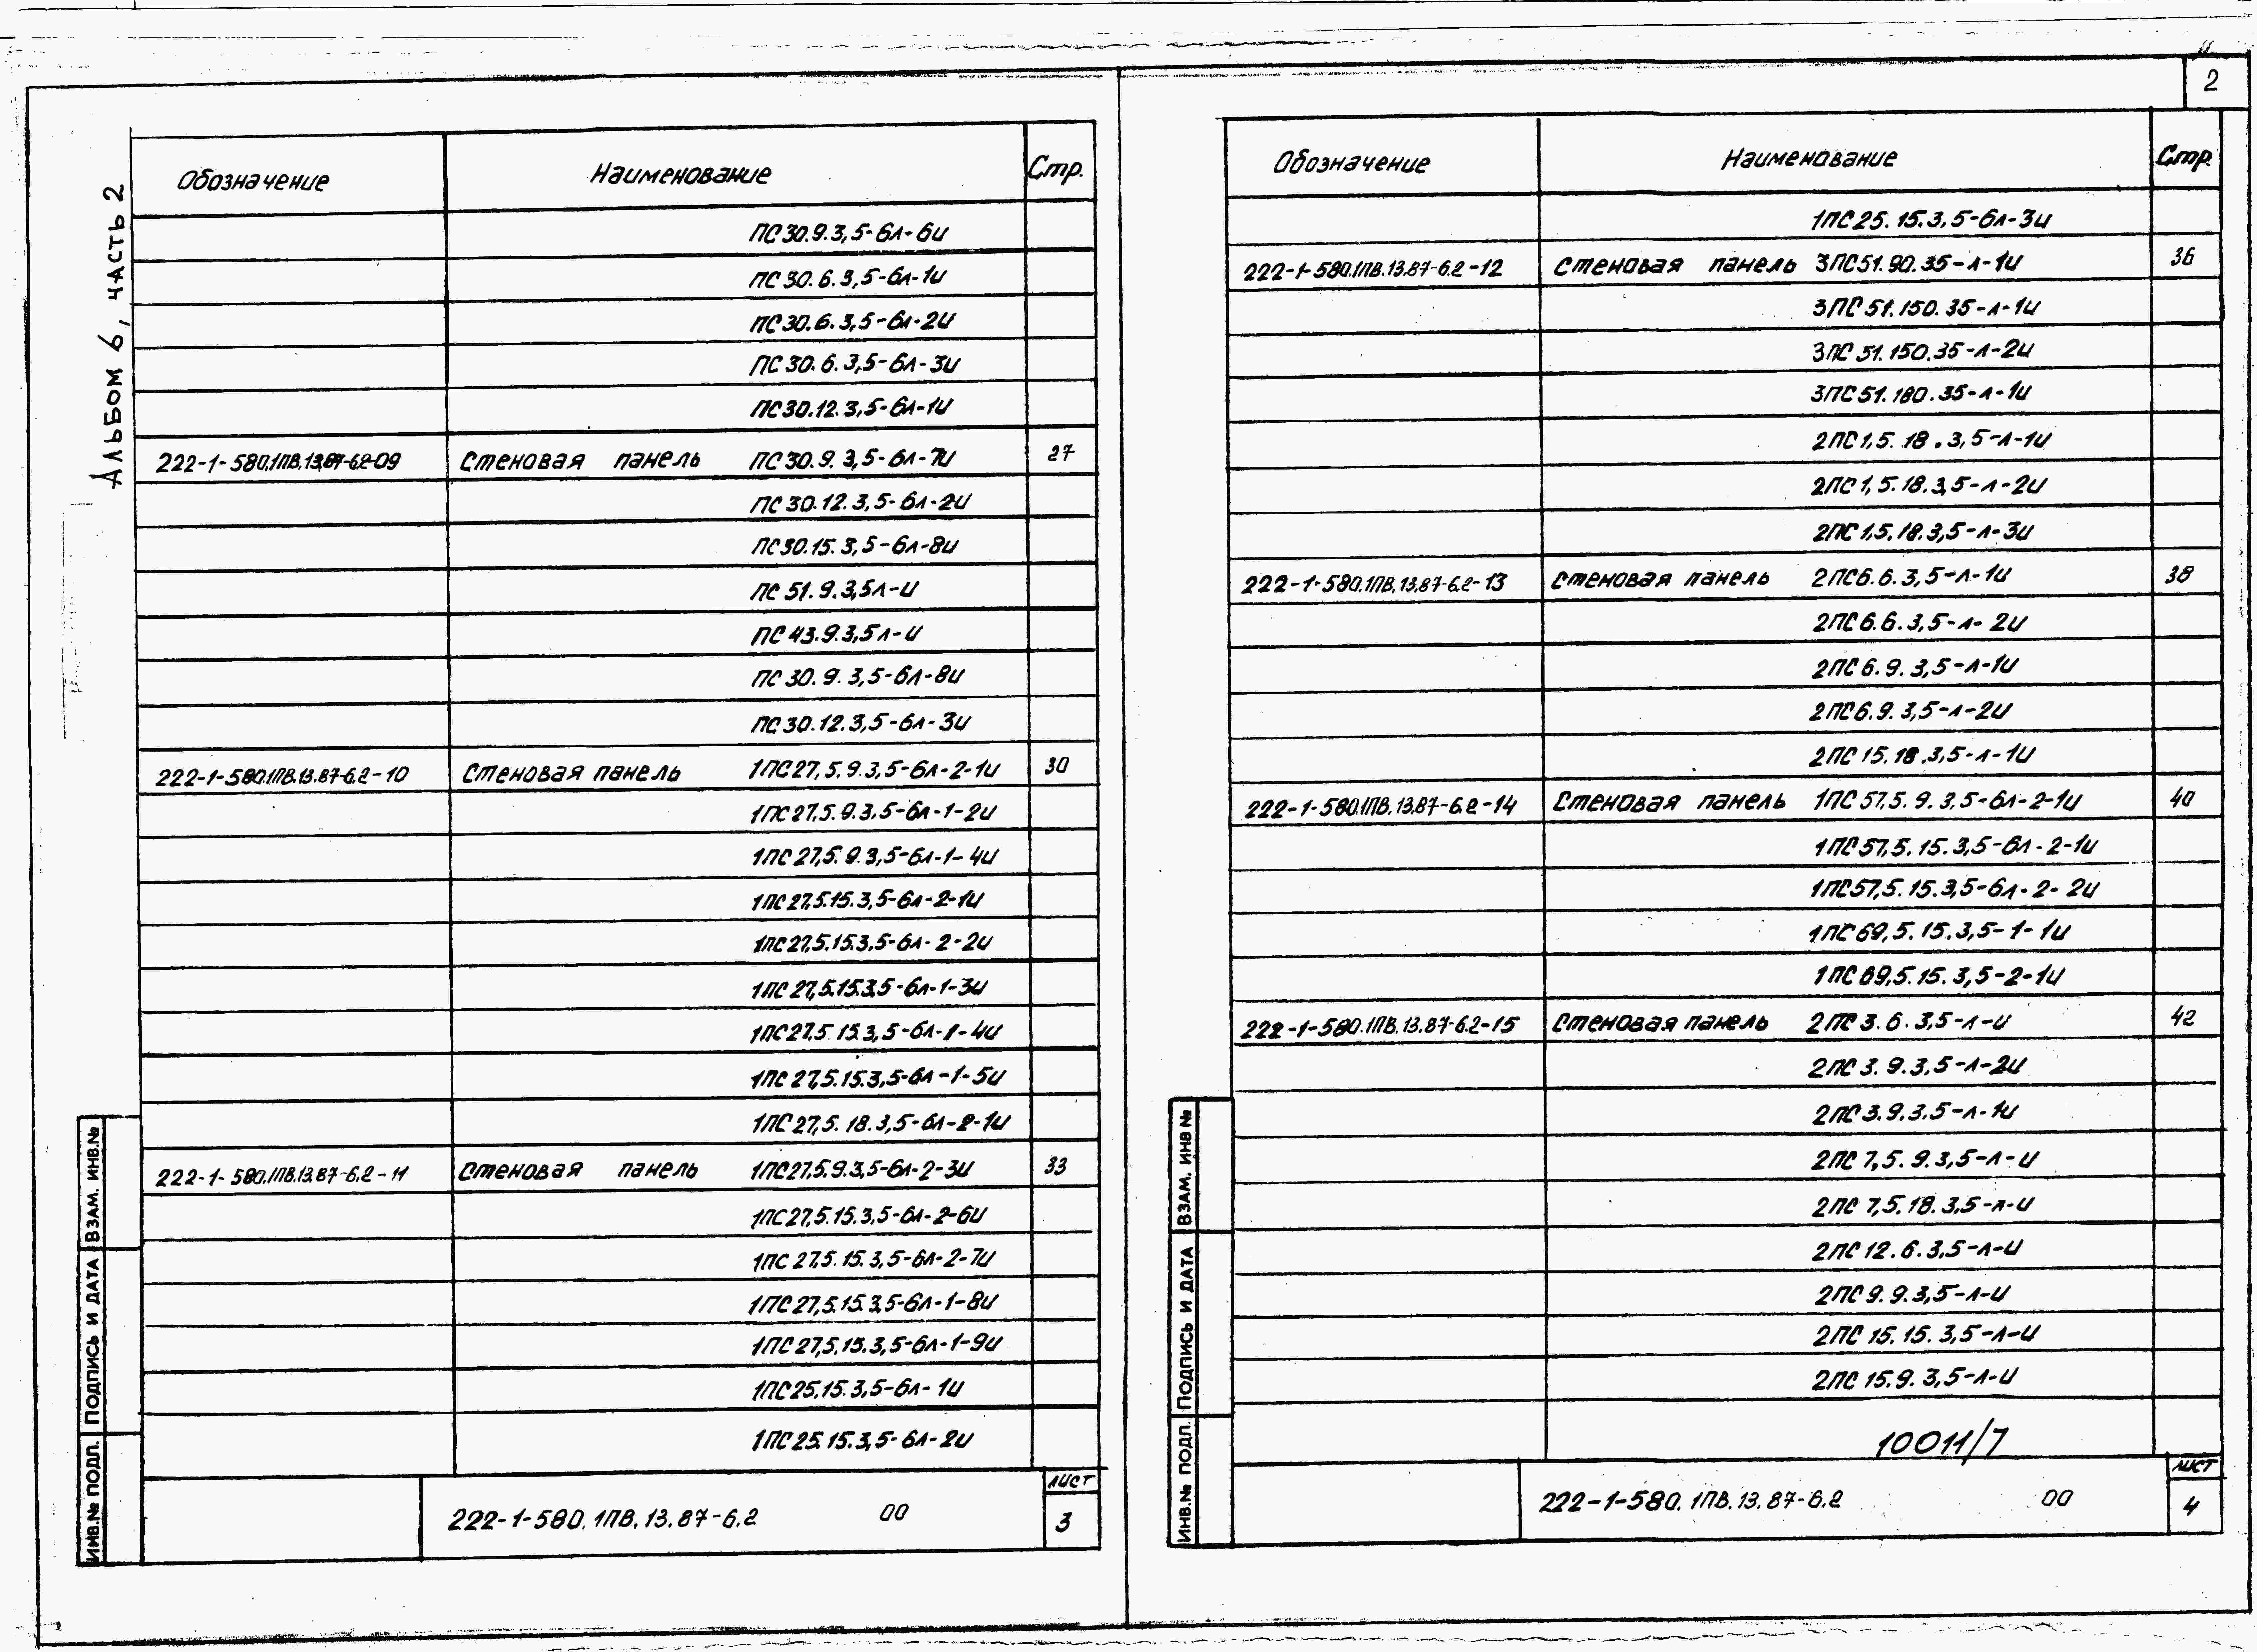 2
Альбом 6, часть 2
Обозначение Наименование Стр.
ПС30.9.3,5-6л-6и
ПС30.6.3,5-6л-1и
ПС30.6.3,5-6л-2и
ПС30.6.3,5-6л-3и
ПС30.12.3,5-6л-1и
222-1-580.1ПВ.13.87-6.2-09 Стеновая панель ПС30.9.3,5-6л-7и 27
ПС30.12.3,5-6л-2и
ПС30.15.3,5-6л-8и
ПС51.9.3,5л-и
ПС43.9.3,5л-и
ПС30.9.3,5-6л-8и
ПС30.12.3,5-6л-3и
222-1-580.1ПВ.13.87-6.2-10 Стеновая панель 1ПС27,5.9.3,5-6л-2-1и 30
1ПС27,5.9.3,5-6л-1-2и
1ПС27,5.9.3,5-6л-1-4и
1ПС27,5.15.3,5-6л-2-1и
1ПС27,5.15.3,5-6л-2-2и
1ПС27,5.15.3,5-6л-1-3и
1ПС27,5.15.3,5-6л-1-4и
1ПС27,5.15.3,5-6л-1-5и
1ПС27,5.18.3,5-6л-2-1и
222-1-580.1ПВ.13.87-6.2-11 Стеновая панель 1ПС27,5.9.3,5-6л-2-3и 33
1ПС27,5.15.3,5-6л-2-6и
1ПС27,5.15.3,5-6л-2-7и
1ПС27,5.15.3,5-6л-1-8и
1ПС27,5.15.3,5-6л-1-9и
1ПС25.15.3,5-6л-1и
1ПС25.15.3,5-6л-2и
ИНВ.№ ПОДЛ. ПОДПИСЬ И ДАТА ВЗАМ. ИНВ.№
222-1-580.1ПВ.13.87-6.2 00
Лист
3
Обозначение Наименование Стр.
1ПС25.15.3,5-6л-3и
222-1-580.1ПВ.13.87-6.2-12 Стеновая панель 3ПС51.90.35-л-1и 36
3ПС51.150.35-л-1и
3ПС51.150.35-л-2и
3ПС51.180.35-л-1и
2ПС1,5.18.3,5-л-1и
2ПС1,5.18.3,5-л-2и
2ПС1,5.18.3,5-л-3и
222-1-580.1ПВ.13.87-6.2-13 Стеновая панель 2ПС6.6.3,5-л-1и 38
2ПС6.6.3,5-л-2и
2ПС6.9.3,5-л-1и
2ПС6.9.3,5-л-2и
2ПС15.18.3,5-л-1и
222-1-580.1ПВ.13.87-6.2-14 Стеновая панель 1ПС57,5.9.3,5-6л-2-1и 40
1ПС57,5.15.3,5-6л-2-1и
1ПС57,5.15.3,5-6л-2-2и
1ПС69,5.15.3,5-1-1и
1ПС69,5.15.3,5-2-1и
222-1-580.1ПВ.13.87-6.2-15 Стеновая панель 2ПС3.6.3,5-л-и 42
2ПС3.9.3,5-л-2и
2ПС3.9.3.5-л-1и
2ПС7,5.9.3,5-л-и
2ПС7,5.18.3,5-л-и
2ПС12.6.3,5-л-и
2ПС9.9.3,5-л-и
2ПС15.15.3,5-л-и
2ПС15.9.3,5-л-и
10011/7
ИНВ.№ ПОДЛ. ПОДПИСЬ И ДАТА ВЗАМ. ИНВ №
222-1-580.1ПВ.13.87-6.2 00
Лист
4